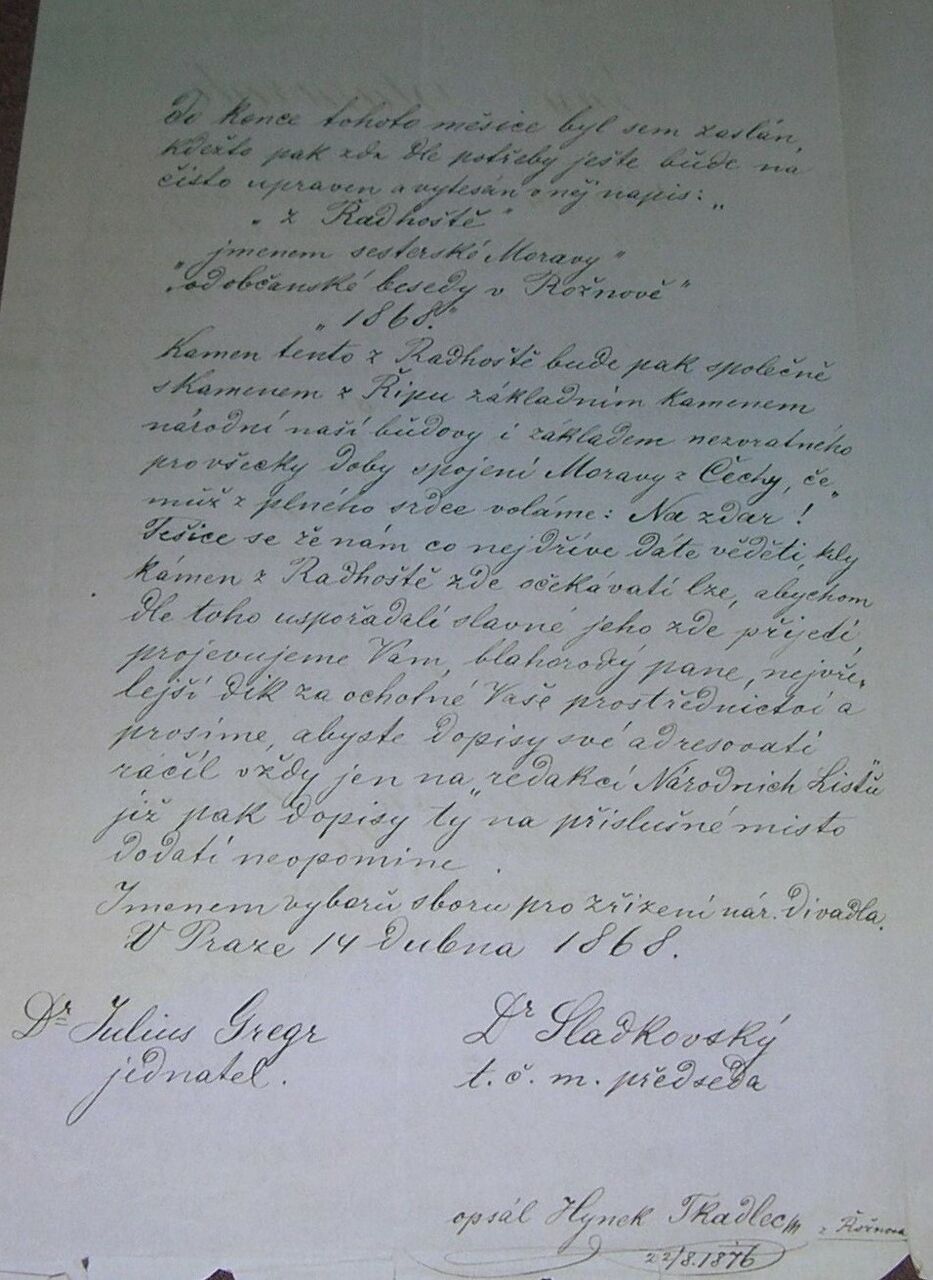 do konce tohoto měsíce byl sem zaslán,
kdežto pak zde dle potřeby ješte bude na
čisto upraven a vytesán v něj napis: „
„ z Radhoště "
„ jmenem sesterské Moravy "
„ od občanské besedy v Rožnově "
„ 1868. "
Kamen tento z Radhoště bude pak společně
s Kamenem z Řípu základním kamenem
národní naší budovy i základem nezvratného
pro všecky doby spojení Moravy z Čechy, če„
muž z plného srdce voláme: Na zdar !
Tešíce se že nám co nejdříve dáte věděti, kdy
kámen z Radhoště zde očekávati lze, abychom
dle toho uspořádali slavné jeho zde přijetí,
projevujeme Vám, blahorodý pane, nejvře„
lejší dík za ochotné Vaše prostřednictví a
prosíme, abyste dopisy své adresovati
ráčil vždy jen na „redakci Národnich Listů"
již pak dopisy ty na příslušné misto
dodati neopomine.
Jmenem vyboru sboru pro zřízení nár. divadla.
V Praze 14 dubna 1868.
Dr Julius Gregr
jednatel.
Dr Sladkovský
t. č. m. předseda
opsál Hynek Tkadlec z Rožnova
22/8.1876